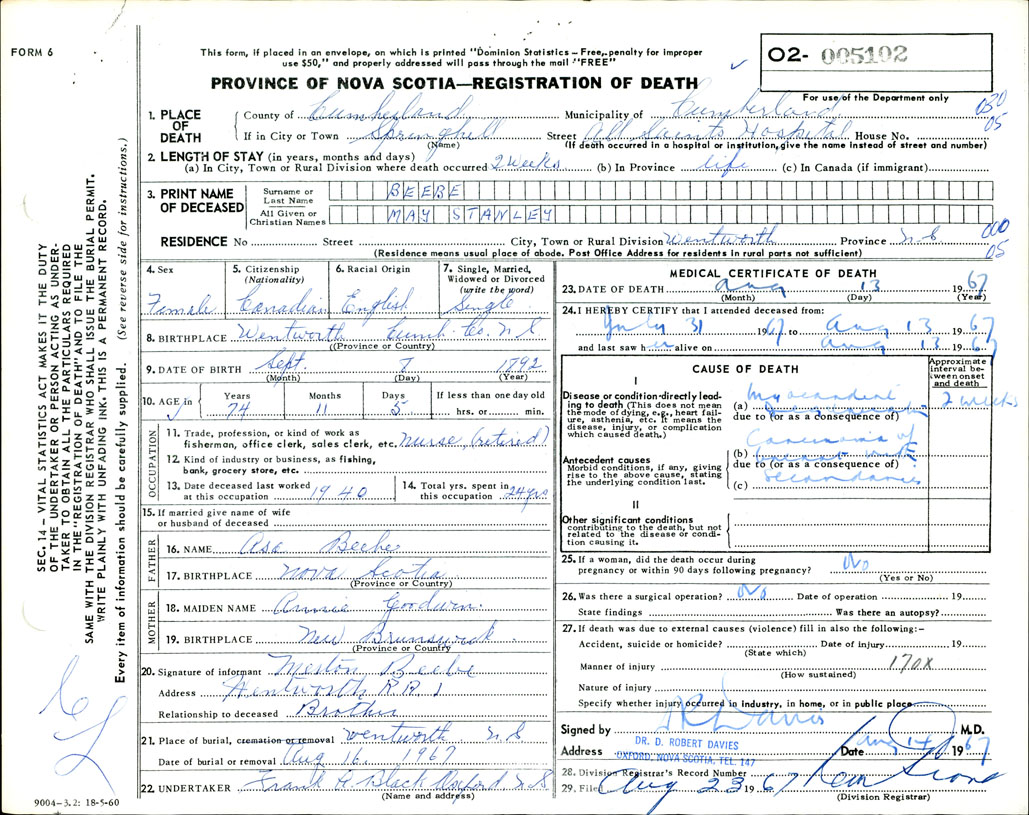 FORM 6
This form, if placed in an envelope, on which is printed "Dominion Statistics — Free, penalty for improper
use $50," and properly addressed will pass through the mail "FREE"
O2- 005102
For use of the Department only
PROVINCE OF NOVA SCOTIA—REGISTRATION OF DEATH
1. PLACE OF DEATH
County of Cumberland Municipality of Cumberland 030
If in City or Town Springhill Street All Saints Hospital House No. 05
(Name) (If death occurred in a hospital or institution, give the name instead of street and number)
2. LENGTH OF STAY (in years, months and days)
(a) In City, Town or Rural Division where death occurred 2 Weeks (b) In Province life (c) In Canada (if immigrant)
3. PRINT NAME OF DECEASED
Surname or Last Name BEEBE
All Given or Christian Names MAY STANLEY
RESIDENCE No Street City, Town or Rural Division Wentworth Province N.S. 000 05
(Residence means usual place of abode. Post Office Address for residents in rural parts not sufficient)
4. Sex Female
5. Citizenship (Nationality) Canadian
6. Racial Origin English
7. Single, Married, Widowed or Divorced (write the word) Single
8. BIRTHPLACE Wentworth Cumb. Co. N S
(Province or Country)
9. DATE OF BIRTH Sept. 7 1892
(Month) (Day) (Year)
10. AGE in Years Months Days If less than one day old
74 11 5 hrs. or min.
OCCUPATION
11. Trade, profession, or kind of work as
fisherman, office clerk, sales clerk, etc. Nurse (retired)
12. Kind of industry or business, as fishing,
bank, grocery store, etc.
13. Date deceased last worked at this occupation 1940
14. Total yrs. spent in this occupation 24 yrs
15. If married give name of wife
or husband of deceased
FATHER
16. NAME Asa Beebe
17. BIRTHPLACE Nova Scotia
(Province or Country)
MOTHER
18. MAIDEN NAME Annie Goodwin
19. BIRTHPLACE New Brunswick
(Province or Country)
20. Signature of informant Beebe
Address Wentworth R R 1
Relationship to deceased Brother
21. Place of burial, cremation or removal Wentworth N S
Date of burial or removal Aug 16 1967
22. UNDERTAKER Frank A. Black Oxford N S
(Name and address)
9004—3.2: 18-5-60
MEDICAL CERTIFICATE OF DEATH
23. DATE OF DEATH Aug 13 1967
(Month) (Day) (Year)
24. I HEREBY CERTIFY that I attended deceased from:
July 31 1967 to Aug 13 1967
and last saw her alive on Aug 13 1967
CAUSE OF DEATH
Approximate interval between onset and death
I
Disease or condition directly leading to death (This does not mean the mode of dying, e.g., heart failure, asthenia, etc. It means the disease, injury, or complication which caused death.)
(a) Myocardial 2 weeks
due to (or as a consequence of)
Antecedent causes
Morbid conditions, if any, giving rise to the above cause, stating the underlying condition last.
(b) Carcinoma of breast with
due to (or as a consequence of)
(c) secondaries
II
Other significant conditions
contributing to the death, but not related to the disease or condition causing it.
25. If a woman, did the death occur during
pregnancy or within 90 days following pregnancy? No
(Yes or No)
26. Was there a surgical operation? No Date of operation 19
State findings Was there an autopsy?
27. If death was due to external causes (violence) fill in also the following:—
Accident, suicide or homicide? Date of injury 19
(State which)
Manner of injury 170X
(How sustained)
Nature of injury
Specify whether injury occurred in industry, in home, or in public place
Signed by D R Davies M.D.
DR. D. ROBERT DAVIES
OXFORD, NOVA SCOTIA, TEL. 147
Address Date Aug 14 1967
28. Division Registrar's Record Number
29. Filed Aug 23 1967
(Division Registrar)
SEC. 14 — VITAL STATISTICS ACT MAKES IT THE DUTY
OF THE UNDERTAKER OR PERSON ACTING AS UNDER-
TAKER TO OBTAIN ALL THE PARTICULARS REQUIRED
IN THE "REGISTRATION OF DEATH" AND TO FILE THE
SAME WITH THE DIVISION REGISTRAR WHO SHALL ISSUE THE BURIAL PERMIT.
WRITE PLAINLY WITH UNFADING INK. THIS IS A PERMANENT RECORD.
Every item of information should be carefully supplied. (See reverse side for instructions.)